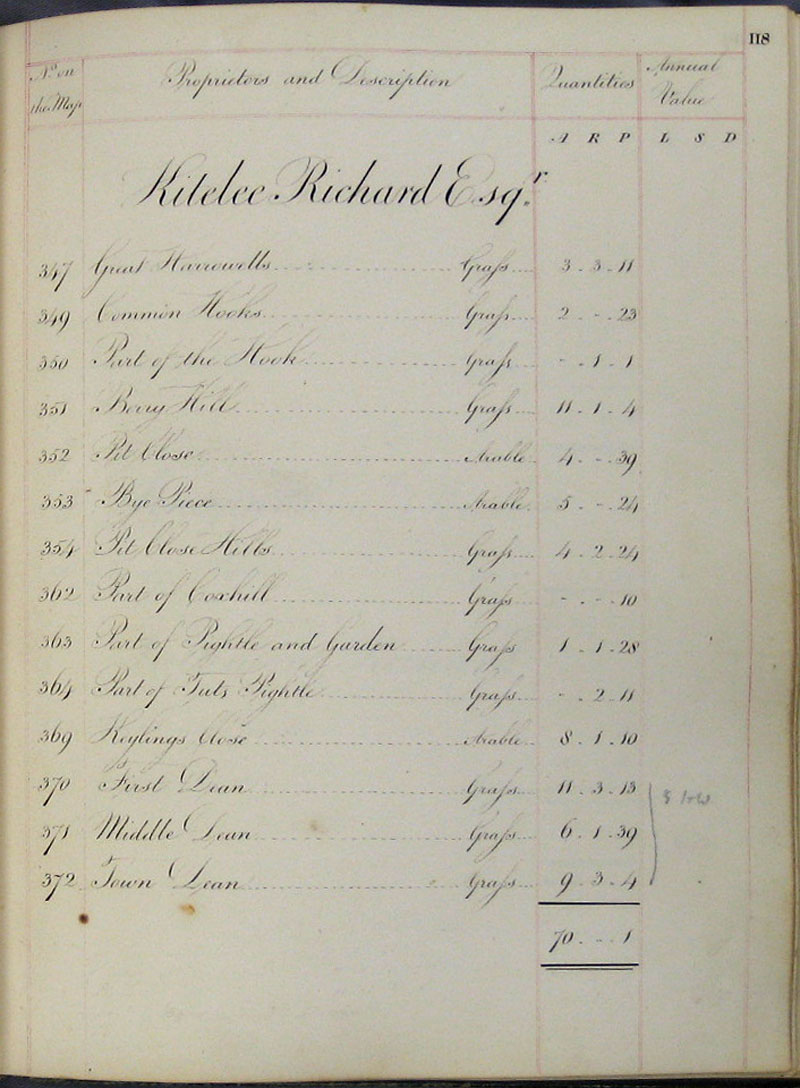 118
No. on the Map Proprietors and Description Quantities Annual Value
A R P L S D
Kitelee Richard Esqr.
347 Great Harrowells Grass 3 - 3 - 11
349 Common Hooks Grass 2 - - - 23
350 Part of the Hook Grass - - 1 - 1
351 Berry Hill Grass 11 - 1 - 4
352 Pit Close Arable 4 - - - 39
353 Bye Piece Arable 5 - - - 24
354 Pit Close Hills Grass 4 - 2 - 24
362 Part of Coxhill Grass - - - - 10
363 Part of Pightle and Garden Grass 1 - 1 - 28
364 Part of Tuts Pightle Grass - - 2 - 11
369 Keylings Close Arable 8 - 1 - 10
370 First Dean Grass 11 - 3 - 13
371 Middle Dean Grass 6 - 1 - 39
372 Town Dean Grass 9 - 3 - 4
70 - - - 1